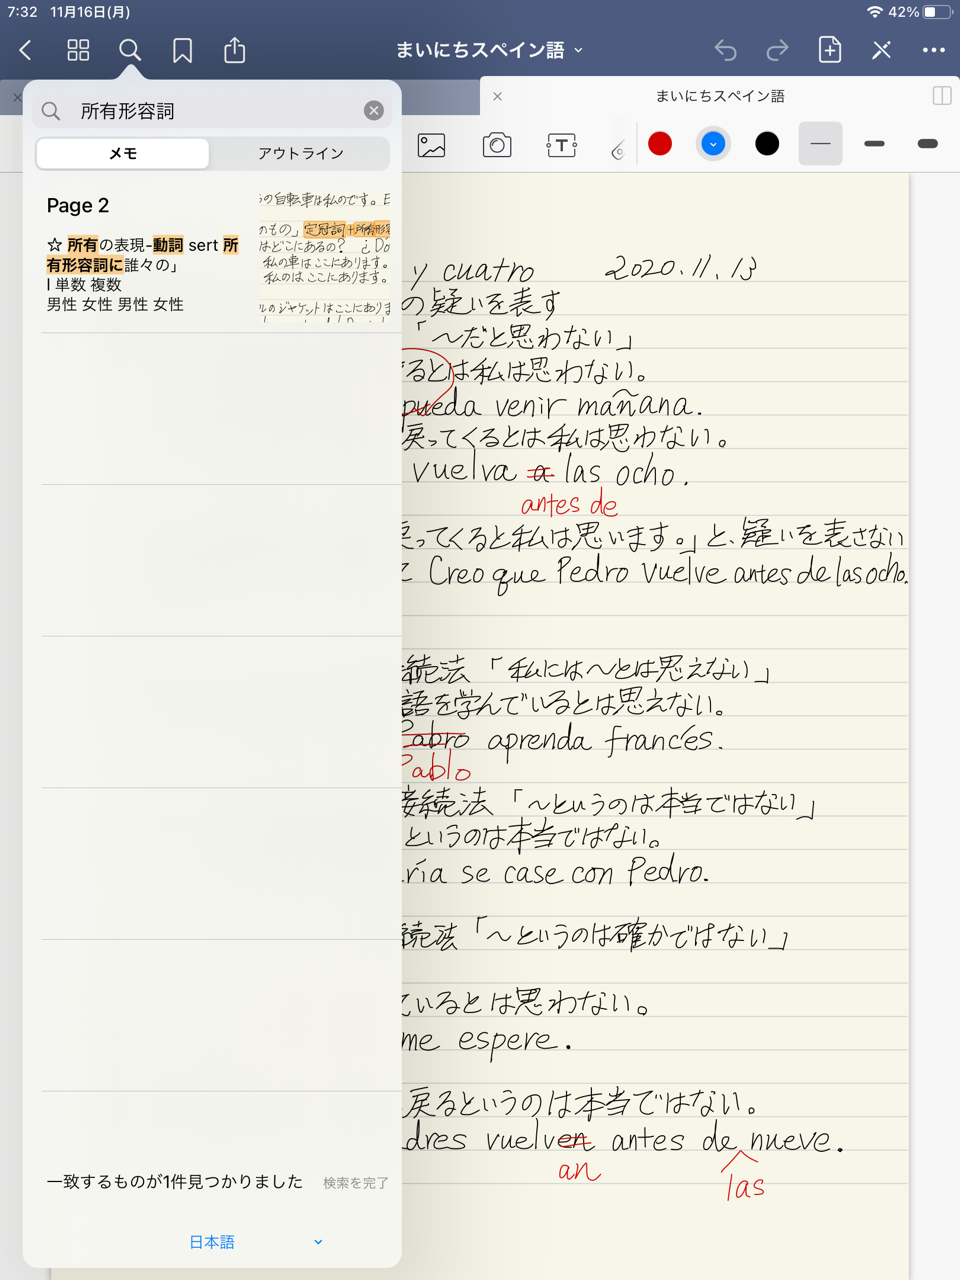 7:32 11月16日(月) 42%
まいにちスペイン語
まいにちスペイン語
所有形容詞
メモ アウトライン
Page 2
☆ 所有の表現-動詞 sert 所
有形容詞に誰々の」
I 単数 複数
男性 女性 男性 女性
の自転車は私のです。E
のもの」定冠詞+所有形容
はどこにあるの? ¿Do
私の車はここにあります。
私のはここにあります。
ルのジャケットはここにありま
一致するものが1件見つかりました 検索を完了
日本語
y cuatro 2020.11.13
の疑いを表す
「〜だと思わない」
るとは私は思わない。
pueda venir mañana.
戻ってくるとは私は思わない。
vuelva a las ocho.
antes de
戻ってくると私は思います。」と、疑いを表さない
て Creo que Pedro vuelve antes de las ocho.
続法「私には〜とは思えない」
語を学んでいるとは思えない。
Pabro aprenda francés.
Pablo
接続法「〜というのは本当ではない」
というのは本当ではない。
ría se case con Pedro.
続法「〜というのは確かではない」
ているとは思わない。
me espere.
戻るというのは本当ではない。
dres vuelven antes de nueve.
an las